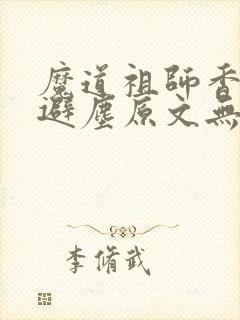 魔道祖師香
避塵原文無
李脩武